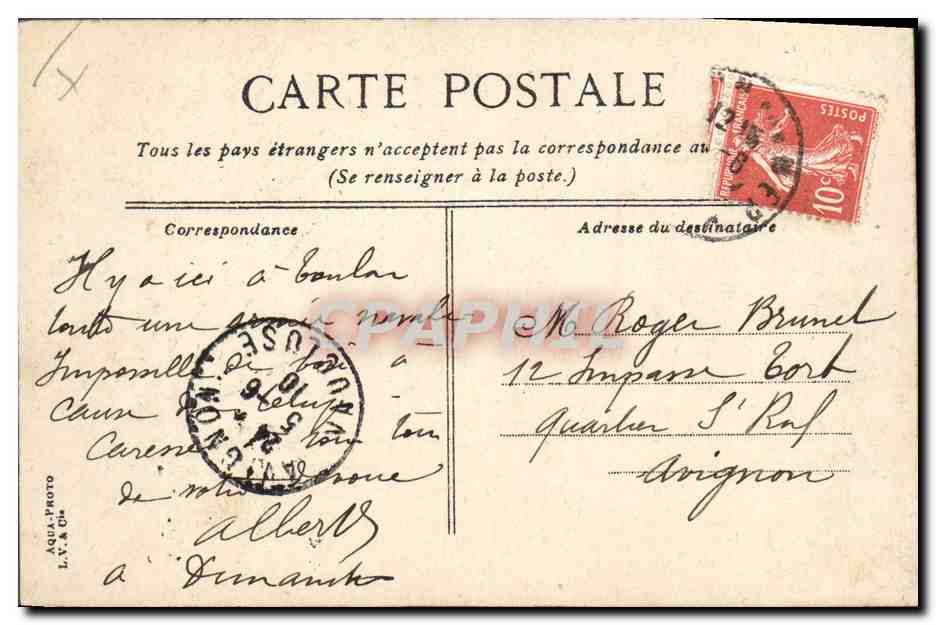 CARTE POSTALE
Tous les pays étrangers n'acceptent pas la correspondance au
(Se renseigner à la poste.)
RÉPUBLIQUE FRANÇAISE
POSTES
10c
Correspondance
Il y a ici à Toulon
toute une armée navale
Impossible de à
cause du
Caresse
de votre
Albert
à Dimanche
Adresse du destinataire
M. Roger Brunel
12 Impasse Tort
Quartier St Raf
Avignon
AVIGNON
VAUCLUSE
AQUA-PHOTO
L.V. & Cie
CPAPHIL